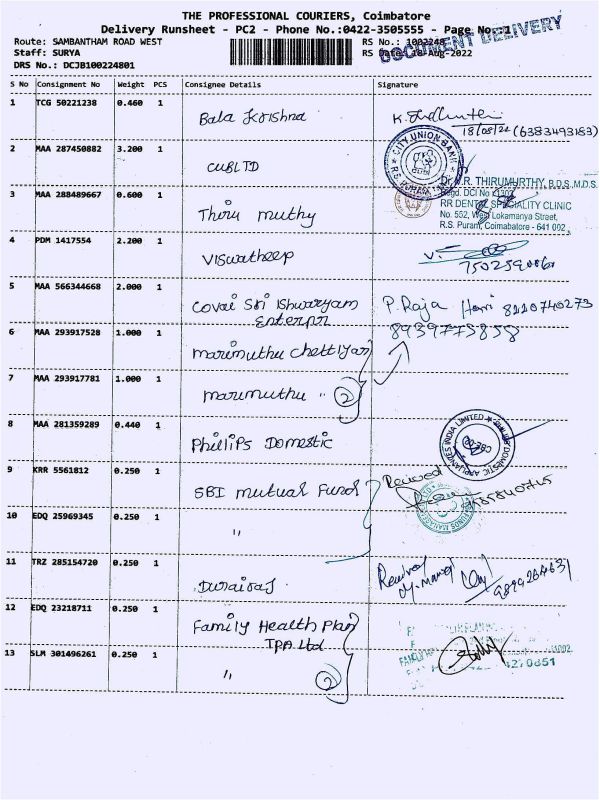 THE PROFESSIONAL COURIERS, Coimbatore
Delivery Runsheet - PC2 - Phone No.:0422-3505555 - Page No.:1
DOCUMENT DELIVERY
Route: SAMBANTHAM ROAD WEST RS No.: 1002248
Staff: SURYA RS Date: 18-Aug-2022
DRS No.: DCJB100224801
S No Consignment No Weight PCS Consignee Details Signature
1 TCG 50221238 0.460 1 Bala Krishna
18/08/22 (6383493183)
2 MAA 287450882 3.200 1 CUB LTD
CITY UNION BANK
R.S. PURAM
3 MAA 288489667 0.600 1 Thiru muthy
Dr. R. THIRUMURTHY, B.D.S.,M.D.S.
Regd. DCI No
RR DENTAL SPECIALITY CLINIC
No. 552, West Lokamanya Street,
R.S. Puram, Coimabatore - 641 002.
4 PDM 1417554 2.200 1 Viswatheep
V.
5 MAA 566344668 2.000 1 Covai Sri Ishwaryam
Enterpr
P. Raja Hari 8220740273
8939775858
6 MAA 293917528 1.000 1 Marimuthu Chettiyar
7 MAA 293917781 1.000 1 marimuthu " 2
8 MAA 281359289 0.440 1 Phillips Domestic
DOMESTIC APPLIANCES INDIA LIMITED
9 KRR 5561812 0.250 1 SBI mutual Fund
Received
10 EDQ 25969345 0.250 1 "
11 TRZ 285154720 0.250 1 Durairaj
12 EDQ 23218711 0.250 1 Family Health Plan
TPA Ltd
13 SLM 301496261 0.250 1 " 2
4270851